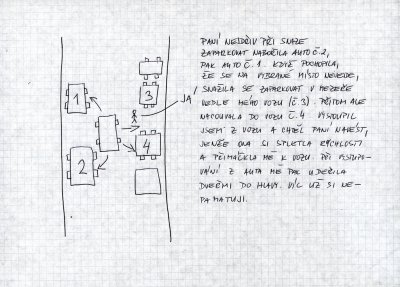 PANÍ NEJDŘÍV PŘI SNAZE
ZAPARKOVAT NABOŘILA AUTO Č.2,
PAK AUTO Č.1. KDYŽ POCHOPILA,
ŽE SE NA VYBRANÉ MÍSTO NEVEJDE,
SNAŽILA SE ZAPARKOVAT V MEZEŘE
VEDLE MÉHO VOZU (Č.3). PŘITOM ALE
NACOUVALA DO VOZU Č.4 VYSTOUPIL
JSEM Z VOZU A CHTĚL PANÍ
JENŽE ONA SI SPLETLA RYCHLOSTI
A PŘIMÁČKLA MĚ K VOZU. PŘI VYSTUPO-
VÁNÍ Z AUTA MĚ PAK UDEŘILA
DVEŘMI DO HLAVY. VÍC UŽ SI NE-
PAMATUJI.
1
3
JÁ
4
2